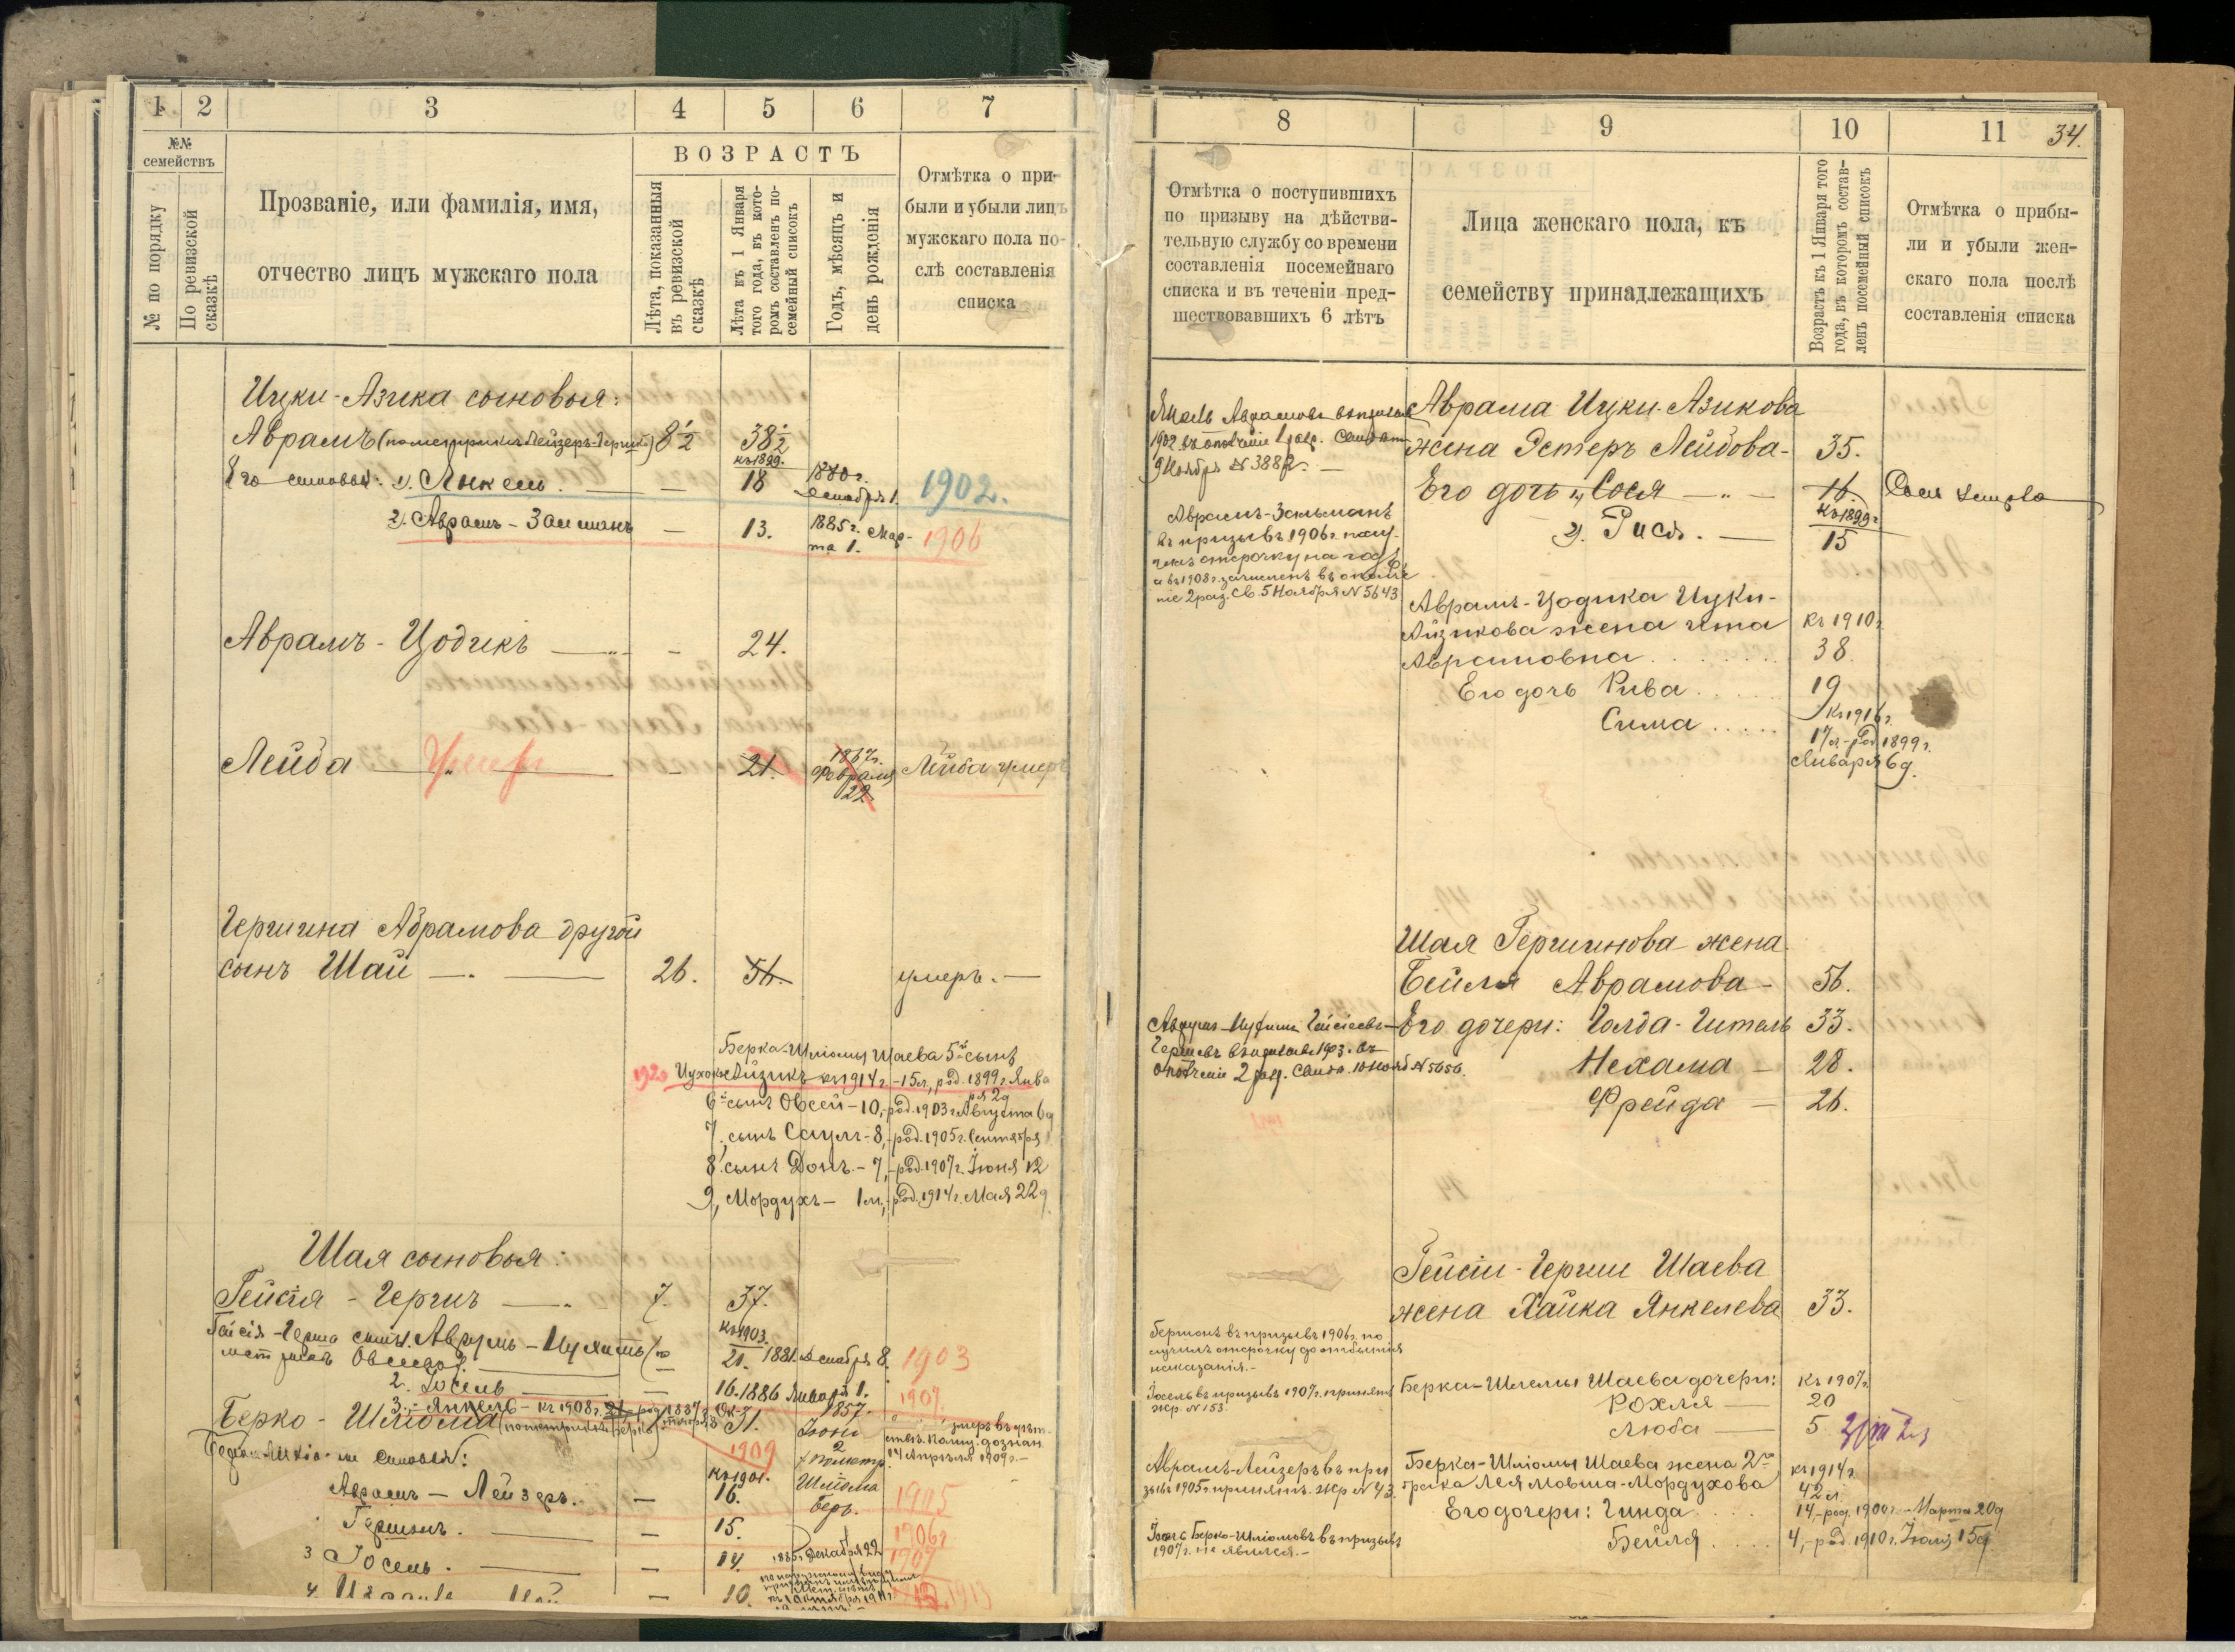 1 2 3 4 5 6 7
№№ семействъ
№ по порядку
По ревизской сказкѣ
Прозваніе, или фамилія, имя,
отчество лицъ мужскаго пола
ВОЗРАСТЪ
Лѣта, показанныя
въ ревизской
сказкѣ
Лѣта къ 1 Января
того года, въ кото-
ромъ составленъ по-
семейный списокъ
Годъ, мѣсяцъ и
день рожденія
Отмѣтка о при-
были и убыли лицъ
мужскаго пола по-
слѣ составленія
списка
Ицки-Азика сыновья:
Аврамъ (по метррикѣ Лейзеръ-Гершко) 8½ 38½
къ 1899.
Его сыновья: 1. Янкель. — — 18 1880 г. декабря 1. 1902.
2. Аврамъ-Залманъ — 13. 1885 г. Мар-
та 1. 1906
Аврамъ-Цодикъ — - 24.
Лейба Умеръ - 21. 1867 г. Февраля 22 Лейба умеръ
Гершина Абрамова другой
сынъ Шай — 26. 56. умеръ. —
Берка-Шліомы Шаева 5й сынъ
1920 Айзикъ къ 1914 г. - 15 л., род. 1899 г. Янва
ря 2 д
6й сынъ Овсей - 10, - род. 1903 г. Августа 6 д
7, сынъ Саулъ - 8, - род. 1905 г. Сентября
8 сынъ Донъ. - 7, - род. 1907 г. Іюня 12
9, Мордухъ - 1 м., - род. 1914 г. Мая 22 д.
Шая сыновья:
Гейсія-Гершъ — 7. 37.
къ 1903.
Гейсія-Герша сынъ 1. Аврумъ - (по
метрикѣ Овсей — 21. 1881 декабря 8. 1903
2. Іосель — — 16. 1886 Января 1. 1907.
3. - Янкель - къ 1908 г. 21 род. 1887
Берко-Шліома (по метрикѣ Берко) 31. 1857. Іюня 2 умеръ
14 Апрѣля 1909 г. —
1909
Берка сыновья:
къ 1901.
Аврамъ - Лейзеръ. — 16. 1905
по метр. Шліома Беръ.
Гершонъ. — — 15. 1906 г
3 Іосель. — — 14. 1885 г. Декабря 22 1907
4. — 10. 1913
8 9 10 11 34.
Отмѣтка о поступившихъ
по призыву на дѣйстви-
тельную службу со времени
составленія посемейнаго
списка и въ теченіи пред-
шествовавшихъ 6 лѣтъ
Лица женскаго пола, къ
семейству принадлежащихъ
Возрастъ къ 1 Января того
года, въ которомъ состав-
ленъ посемейный списокъ
Отмѣтка о прибы-
ли и убыли жен-
скаго пола послѣ
составленія списка
Янкель Аврамовъ въ призывъ
1902 въ ополченіе 1 разр. Свид. от
9 Ноября № 3882. —
Аврама Ицки-Азикова
жена Эстеръ Лейбова - 35.
Его дочь 1, Сося — 16. Сося умерла
къ 1899 г
2. Рися. — 15
Аврамъ-Зальманъ
въ призывъ 1906 г. полу-
чилъ отсрочку на годъ
а въ 1908 г. зачисленъ въ ополче
ніе 2 раз. Св. 5 Ноября № 5643
Аврамъ-Цодика Ицки-
Айзикова жена Чта къ 1910 г
Аврамовна 38.
Его дочь Рива 19
къ 1916 г.
Сима 17 л. - род. 1899 г.
Января 6 д.
Шая Гершинова жена
Бейля Аврамова - 56.
Его дочери: Голда-Гитель 33.
Нехама - 28.
Фрейда - 26.
Аврумъ Гейсіевъ-
Гершевъ въ призывъ 1903 г. въ
ополченіе 2 разр. Свид. 10 Нояб № 5656.
Гейсіи-Герши Шаева
жена Хайка Янкелева 33.
Гершонъ въ призывъ 1906 г. по
лучилъ отсрочку до отбытія
наказанія. -
Іосель въ призывъ 1907 г. принятъ
жр. № 153.
Берка-Шлемы Шаева дочери: къ 1907 г
Рохля — 20
Люба — 5
Аврамъ-Лейзеръ въ при
зывъ 1905 г. принятъ. жр № 43.
Берка-Шліомы Шаева жена 2го
брака Лея Мовша-Мордухова къ 1914 г. 42 л
Его дочери: Гинда 14, - род. 1900 г. Марта 20 д
Бейля 4, - род. 1910 г. Іюля 15 д.
Іосель Берко-Шліомовъ въ призывъ
1907 г. не явился. -